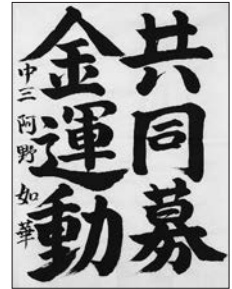 共同募
金運動
中三 阿野 如華